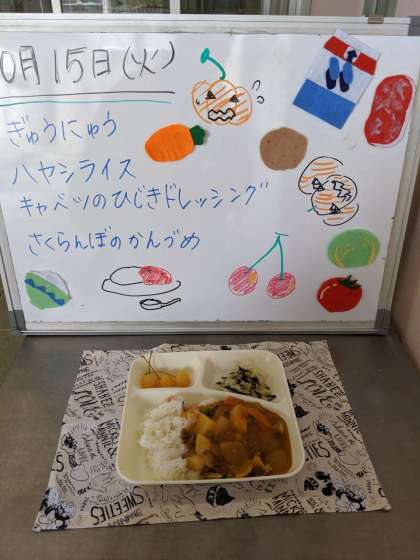 0月15日(火)
ぎゅうにゅう
ハヤシライス
キャベツのひじきドレッシング
さくらんぼのかんづめ
SWEETIES